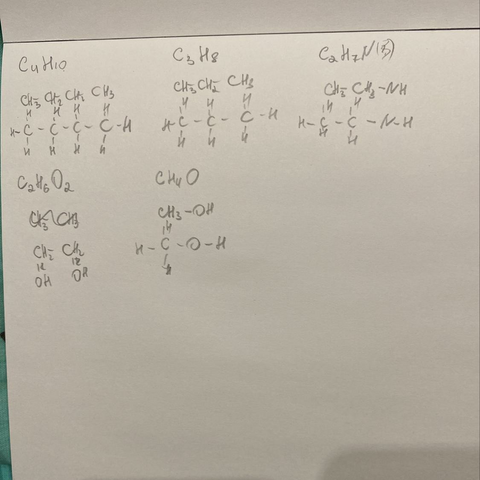 C4H10
CH3- CH2 CH2 CH3
H H H H
H - C - C - C - C - H
H H H H
C3H8
CH3- CH2- CH3
H H H
H - C - C - C - H
H H H
C2H7N
CH3- CH3-NH
H H
H - C - C - N - H
H H
C2H6O2
CH3 CH3
CH2- CH2
OH OH
CH4O
CH3-OH
H
H - C - O - H
H